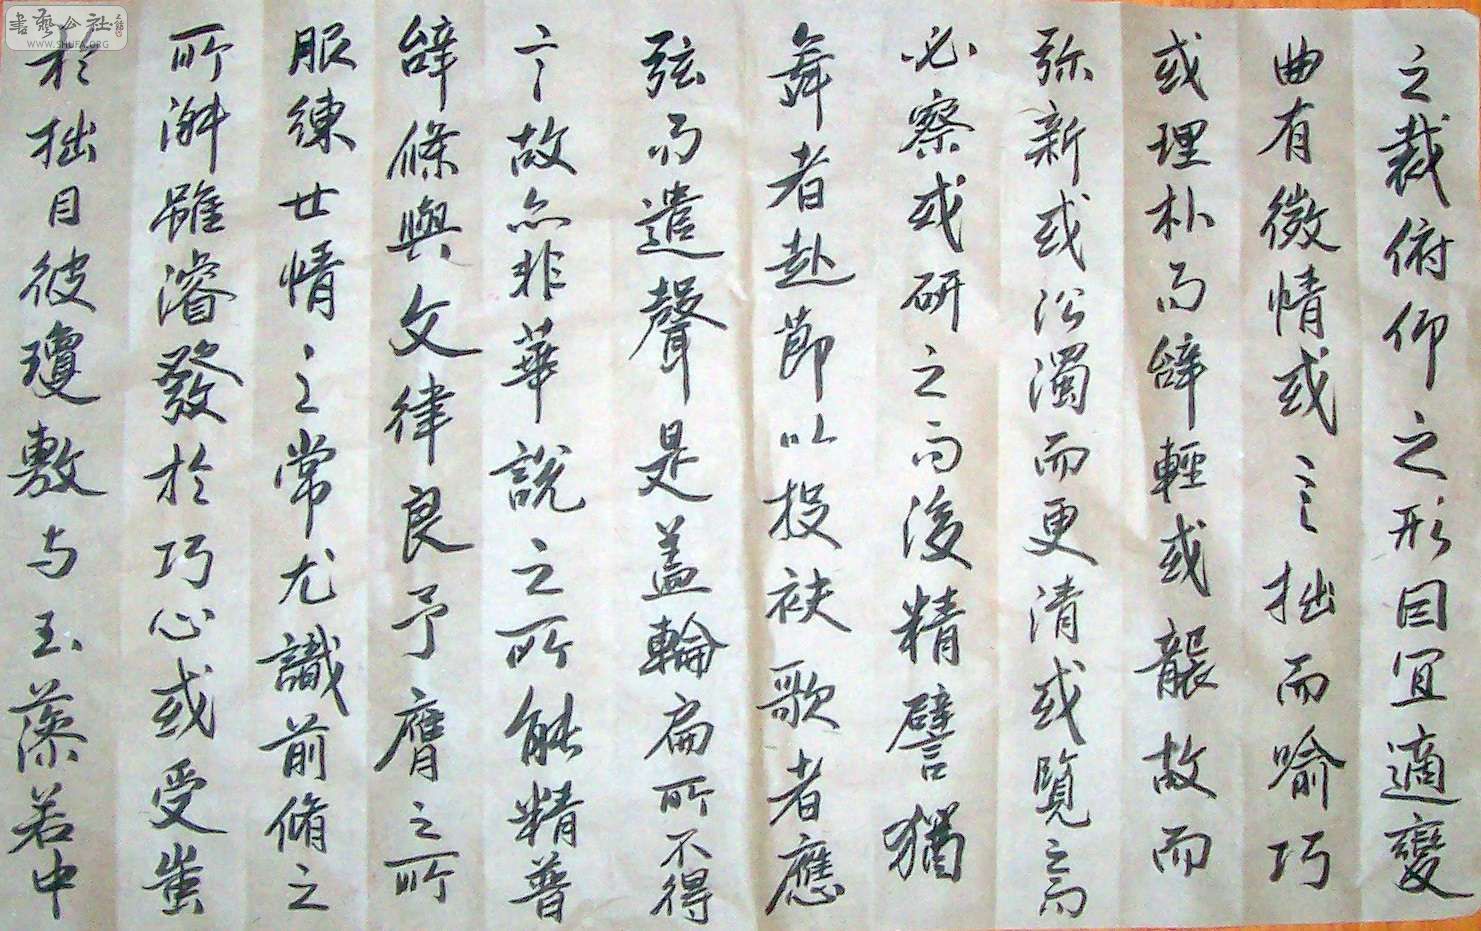 之裁俯仰之形因宜適變
曲有微情或言拙而喻巧
或理朴而辭輕或襲故而
弥新或沿濁而更清或覽之而
必察或研之而後精譬猶
舞者赴節以投袂歌者應
弦而遣聲是盖輪扁所不得
言故亦非華說之所能精普
辭條與文律良予膺之所
服練世情之常尤識前脩之
所淑雖濬發於巧心或受蚩
於拙目彼瓊敷与玉藻若中
書藝公社
WWW.SHUFA.ORG